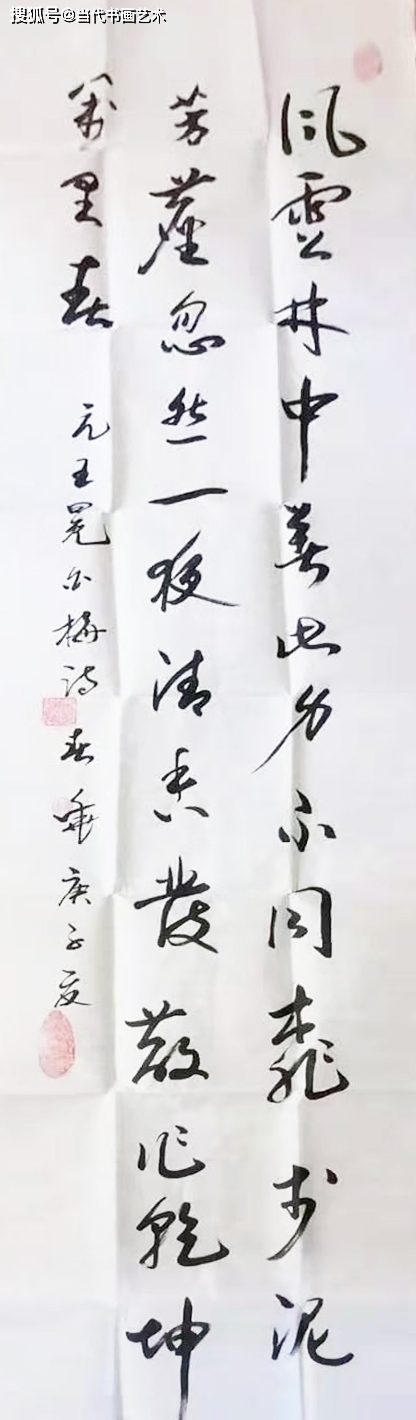 搜狐号@当代书画艺术
冰雪林中著此身不同桃李混
芳塵忽然一夜清香發散作乾坤
萬里春
元王冕白梅诗 春 庚子夏